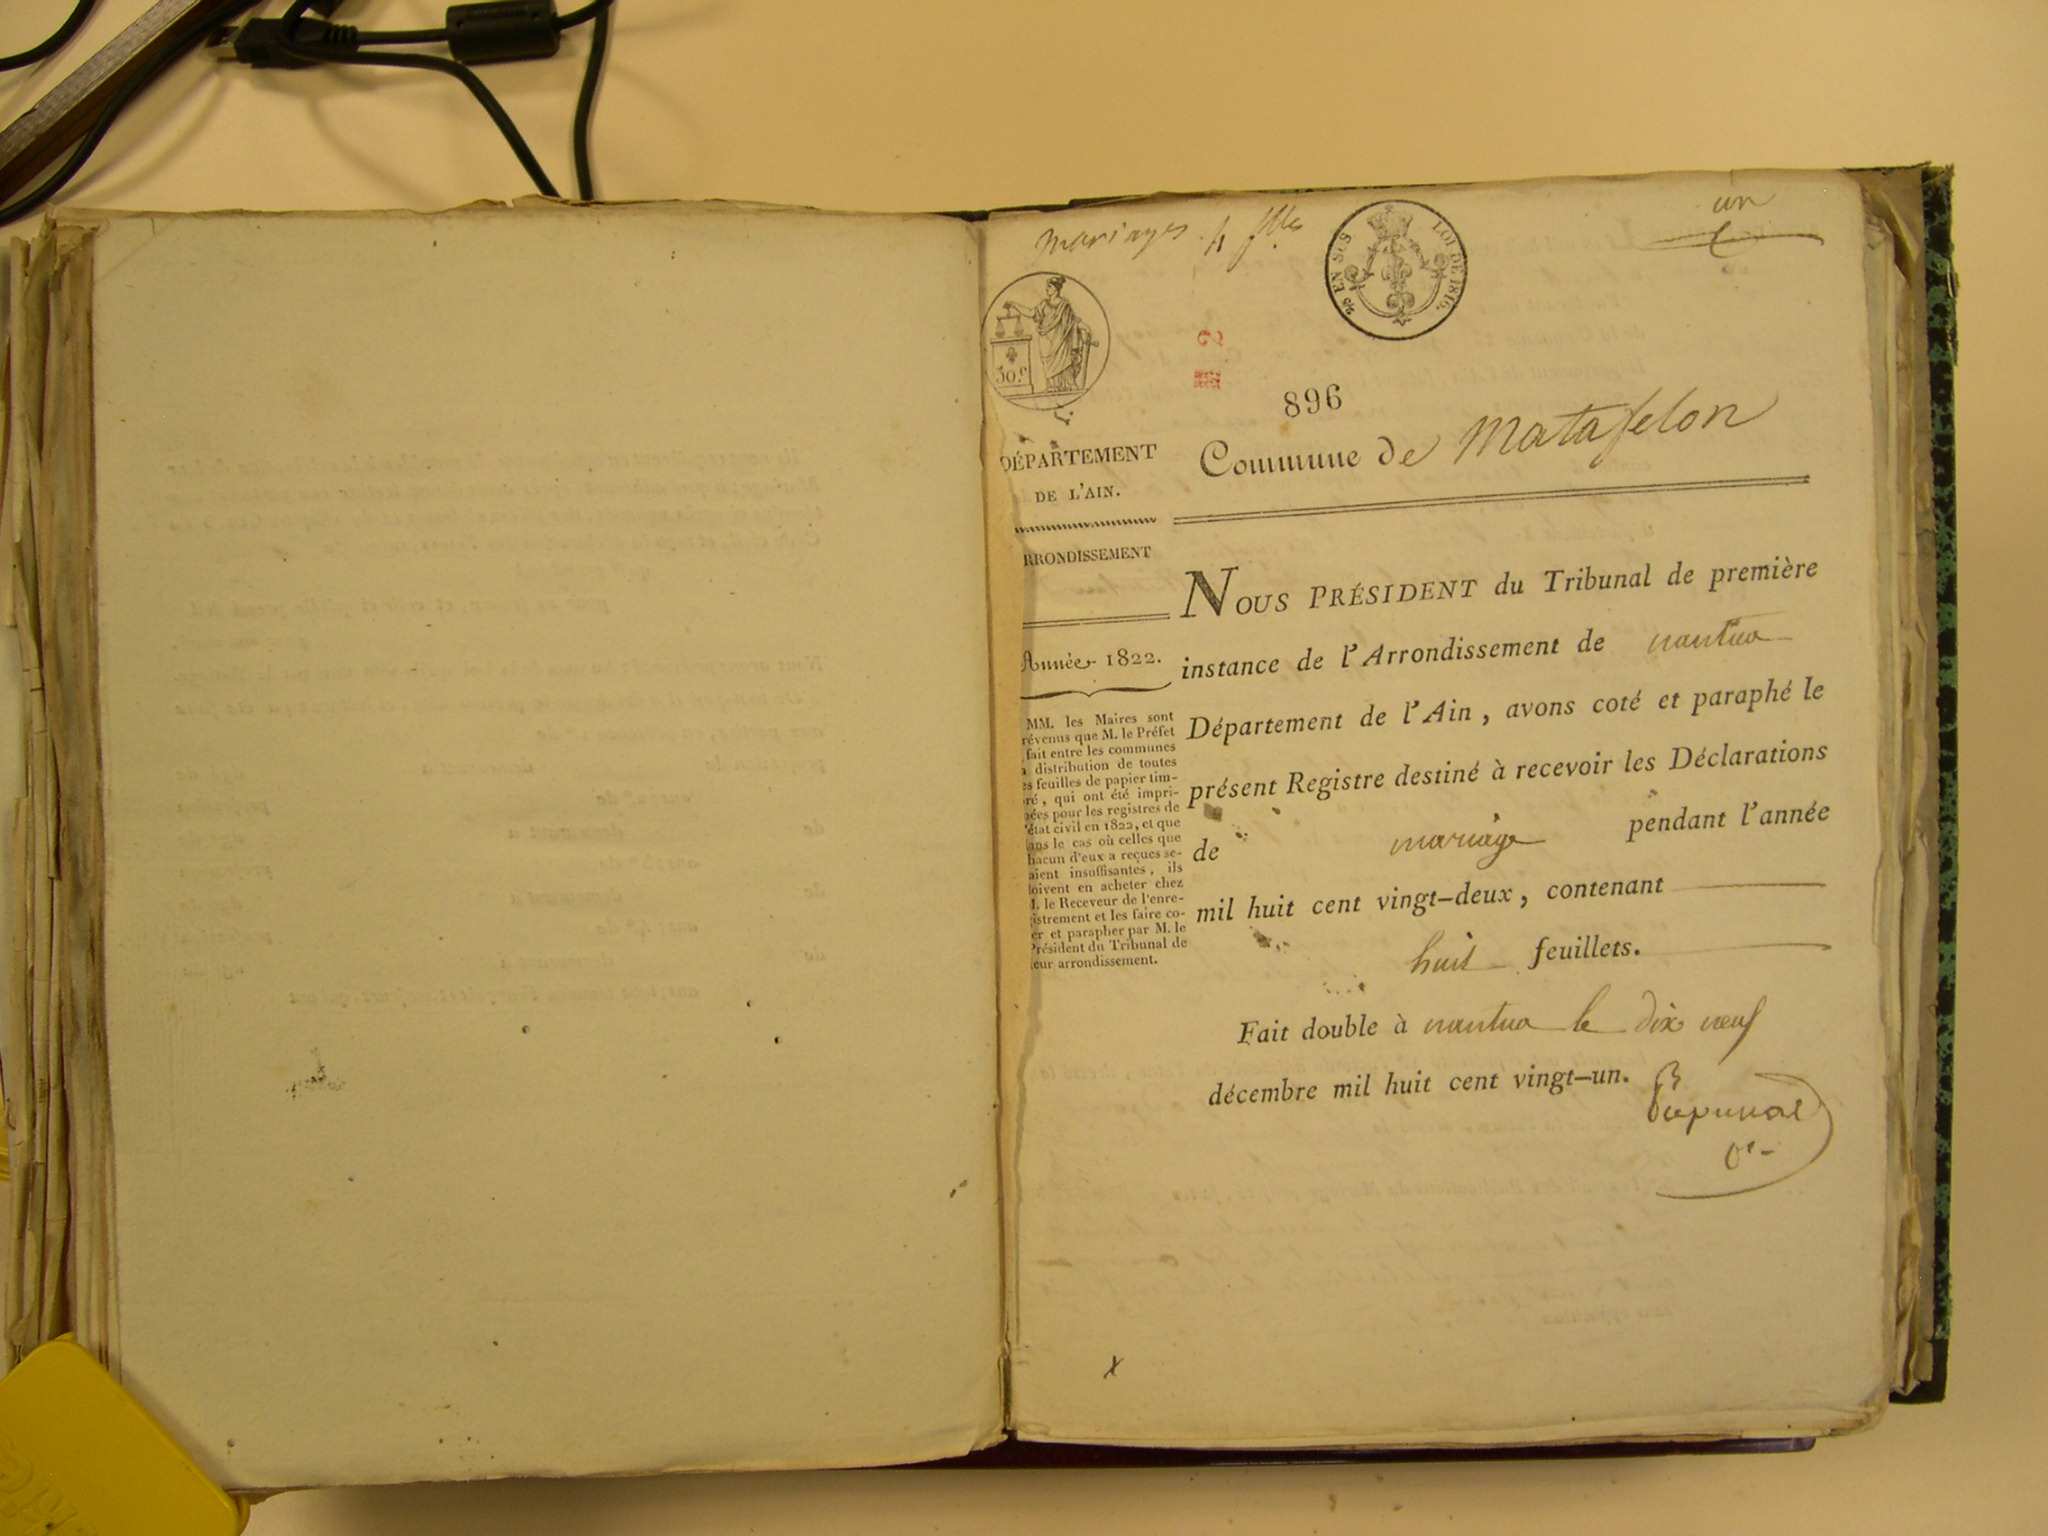 un
mariages
2/5 EN SUS
LOI DE 1816.
30.c
2
896
DÉPARTEMENT
DE L'AIN.
RRONDISSEMENT
Année 1822.
MM. les Maires sont
révenus que M. le Préfet
fait entre les communes
a distribution de toutes
es feuilles de papier tim-
ré, qui ont été impri-
ées pour les registres de
'état civil en 1822, et que
ans le cas où celles que
hacun d'eux a reçues se-
aient insuffisantes, ils
oivent en acheter chez
M. le Receveur de l'enre-
istrement et les faire co-
er et parapher par M. le
Président du Tribunal de
eur arrondissement.
Commune de Matafelon
NOUS PRÉSIDENT du Tribunal de première
instance de l'Arrondissement de nantua
Département de l'Ain, avons coté et paraphé le
présent Registre destiné à recevoir les Déclarations
de mariage pendant l'année
mil huit cent vingt-deux, contenant
huit feuillets.
Fait double à nantua le dix neuf
décembre mil huit cent vingt-un.